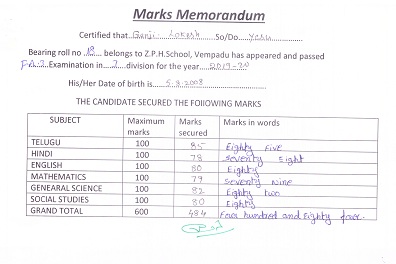 Marks Memorandum
Certified that Ganji Lokesh So/Do Yesu
Bearing roll no 18 belongs to Z.P.H.School, Vempadu has appeared and passed
Examination in division for the year 2019-20
His/Her Date of birth is 5-8-2008
THE CANDIDATE SECURED THE FOllOWING MARKS
SUBJECT Maximum marks Marks secured Marks in words
TELUGU 100 85 Eighty Five
HINDI 100 78 Seventy Eight
ENGLISH 100 80 Eighty
MATHEMATICS 100 79 Seventy Nine
GENEARAL SCIENCE 100 82 Eighty two
SOCIAL STUDIES 100 80 Eighty
GRAND TOTAL 600 484 Four hundred and Eighty four.